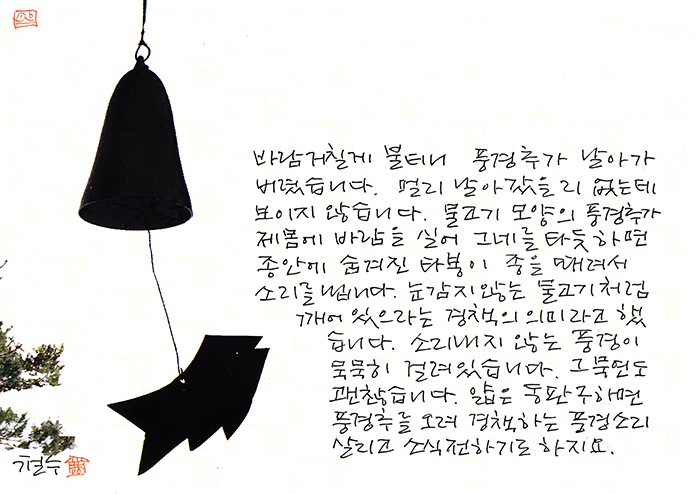 바람거칠게 불더니 풍경추가 날아가
버렸습니다. 멀리 날아갔을리 없는데
보이지 않습니다. 물고기 모양의 풍경추가
제몸에 바람을 실어 그네를 타듯하면
종안에 숨겨진 타봉이 종을 때려서
소리를 냅니다. 눈감지않는 물고기처럼
깨어있으라는 경책의 의미라고 했
습니다. 소리내지 않는 풍경이
묵묵히 걸려있습니다. 그묵언도
괜찮습니다. 얇은 동판구하면
풍경추를 오려 경책하는 풍경소리
살리고 소식전하기도 하지요.
철수